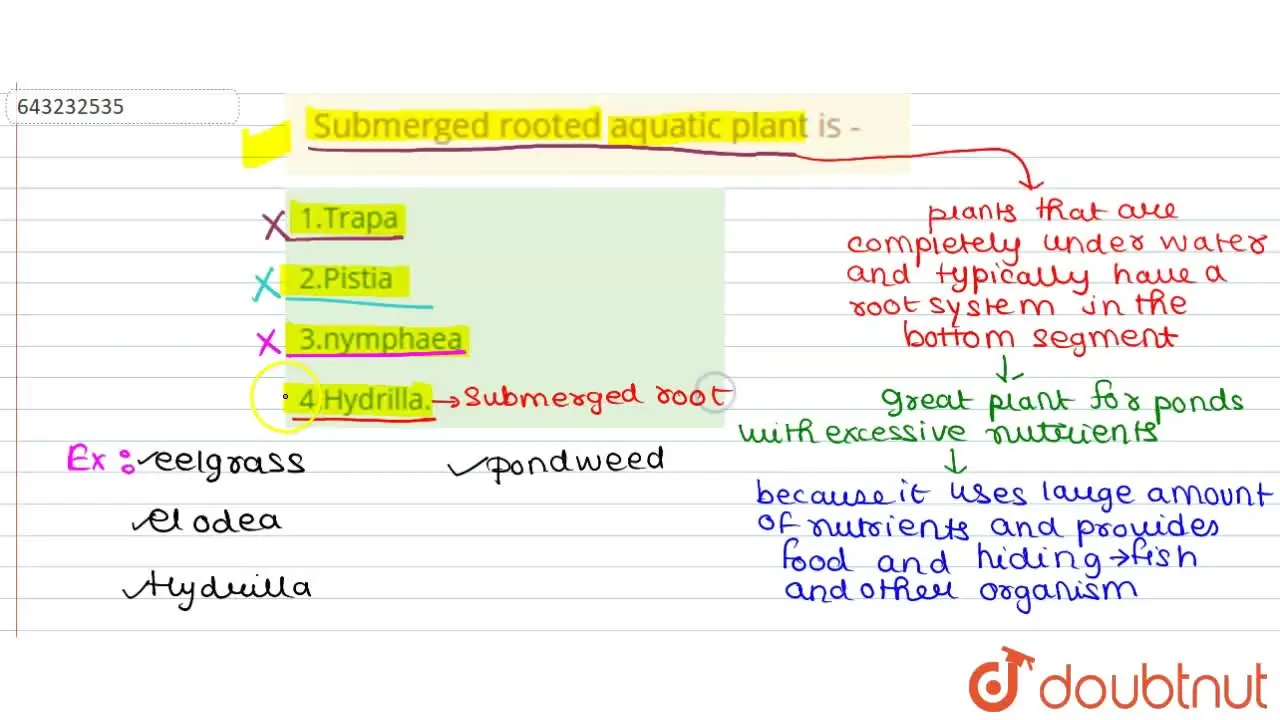 643232535
Submerged rooted aquatic plant is -
1.Trapa
2.Pistia
3.nymphaea
4.Hydrilla. → Submerged root
Ex : eelgrass
pondweed
elodea
Hydrilla
plants that are
completely under water
and typically have a
root system in the
bottom segment
great plant for ponds
with excessive nutrients
because it uses large amount
of nutrients and provides
food and hiding → fish
and other organism
doubtnut